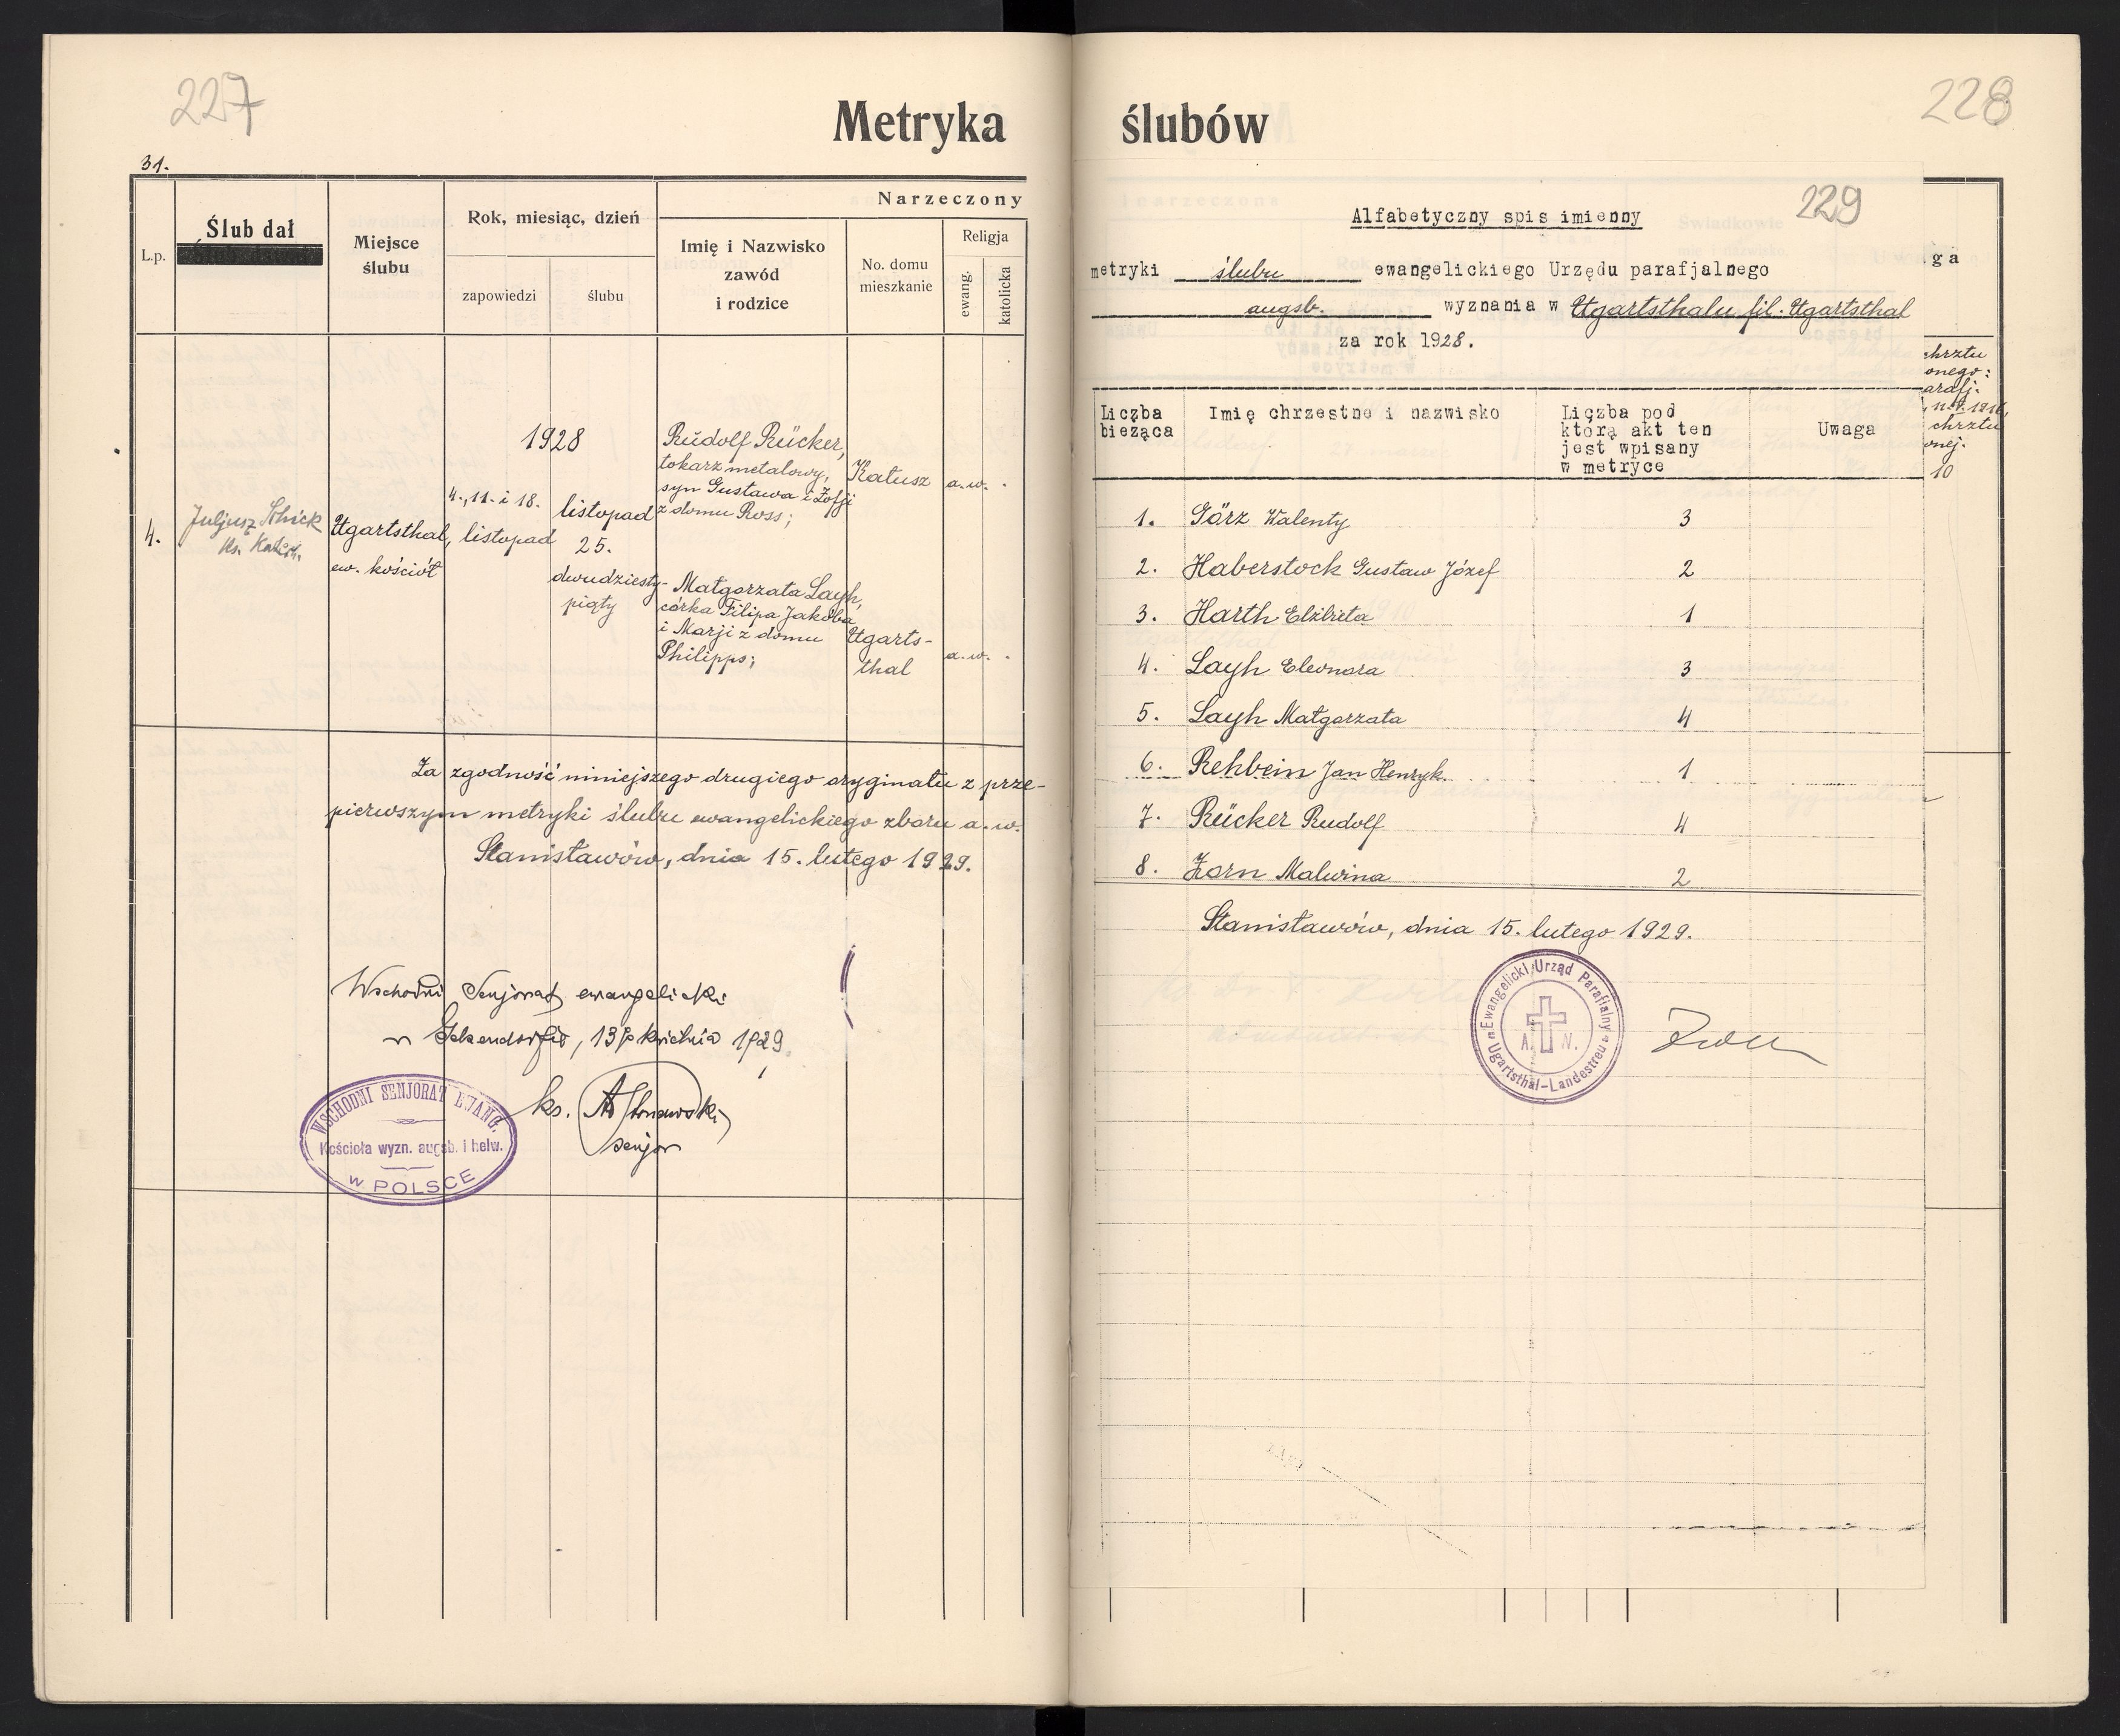 227
Metryka
31.
L.p.
Ślub dał
Miejsce
ślubu
Rok, miesiąc, dzień
zapowiedzi
ślubu
Narzeczony
Imię i Nazwisko
zawód
i rodzice
No. domu
mieszkanie
Religja
ewang.
katolicka
4.
Juljusz Schick
ks. Katech.
Ugartsthal,
ew. kościół
1928
4., 11. i 18.
listopad
listopad
25.
dwudziesty-
piąty
Rudolf Rücker,
tokarz metalowy,
syn Gustawa i Zofji
z domu Ross;
Kałusz
a.w.
Małgorzata Layh,
córka Filipa Jakóba
i Marji z domu
Philipps;
Ugarts-
thal
a.w.
Za zgodność niniejszego drugiego oryginału z prze-
pierwszym metryki ślubu ewangelickiego zboru a.w.
Stanisławów, dnia 15. lutego 1929.
Wschodni Senjorat ewangelicki
w Gelsendorfie, 13 kwietnia 1929
ks.
senjor
WSCHODNI SENJORAT EWANG.
Kościoła wyzn. augsb. i helw.
w POLSCE
ślubów
228
229
Alfabetyczny spis imienny
metryki ślubu ewangelickiego Urzędu parafjalnego
augsb. wyznania w Ugartsthalu fil. Ugartsthal
za rok 1928.
Liczba
bieżąca
Imię chrzestne i nazwisko
Liczba pod
którą akt ten
jest wpisany
w metryce
Uwaga
1. Görz Walenty 3
2. Haberstock Gustaw Józef 2
3. Harth Elżbieta 1
4. Layh Eleonora 3
5. Layh Małgorzata 4
6. Rehbein Jan Henryk 1
7. Rücker Rudolf 4
8. Zorn Malwina 2
Stanisławów, dnia 15. lutego 1929.
Ewangelicki Urząd Parafialny
A. W.
w Ugartsthal-Landestreu
ga
chrztu
onego:
arafj.
chrztu
onej.
10